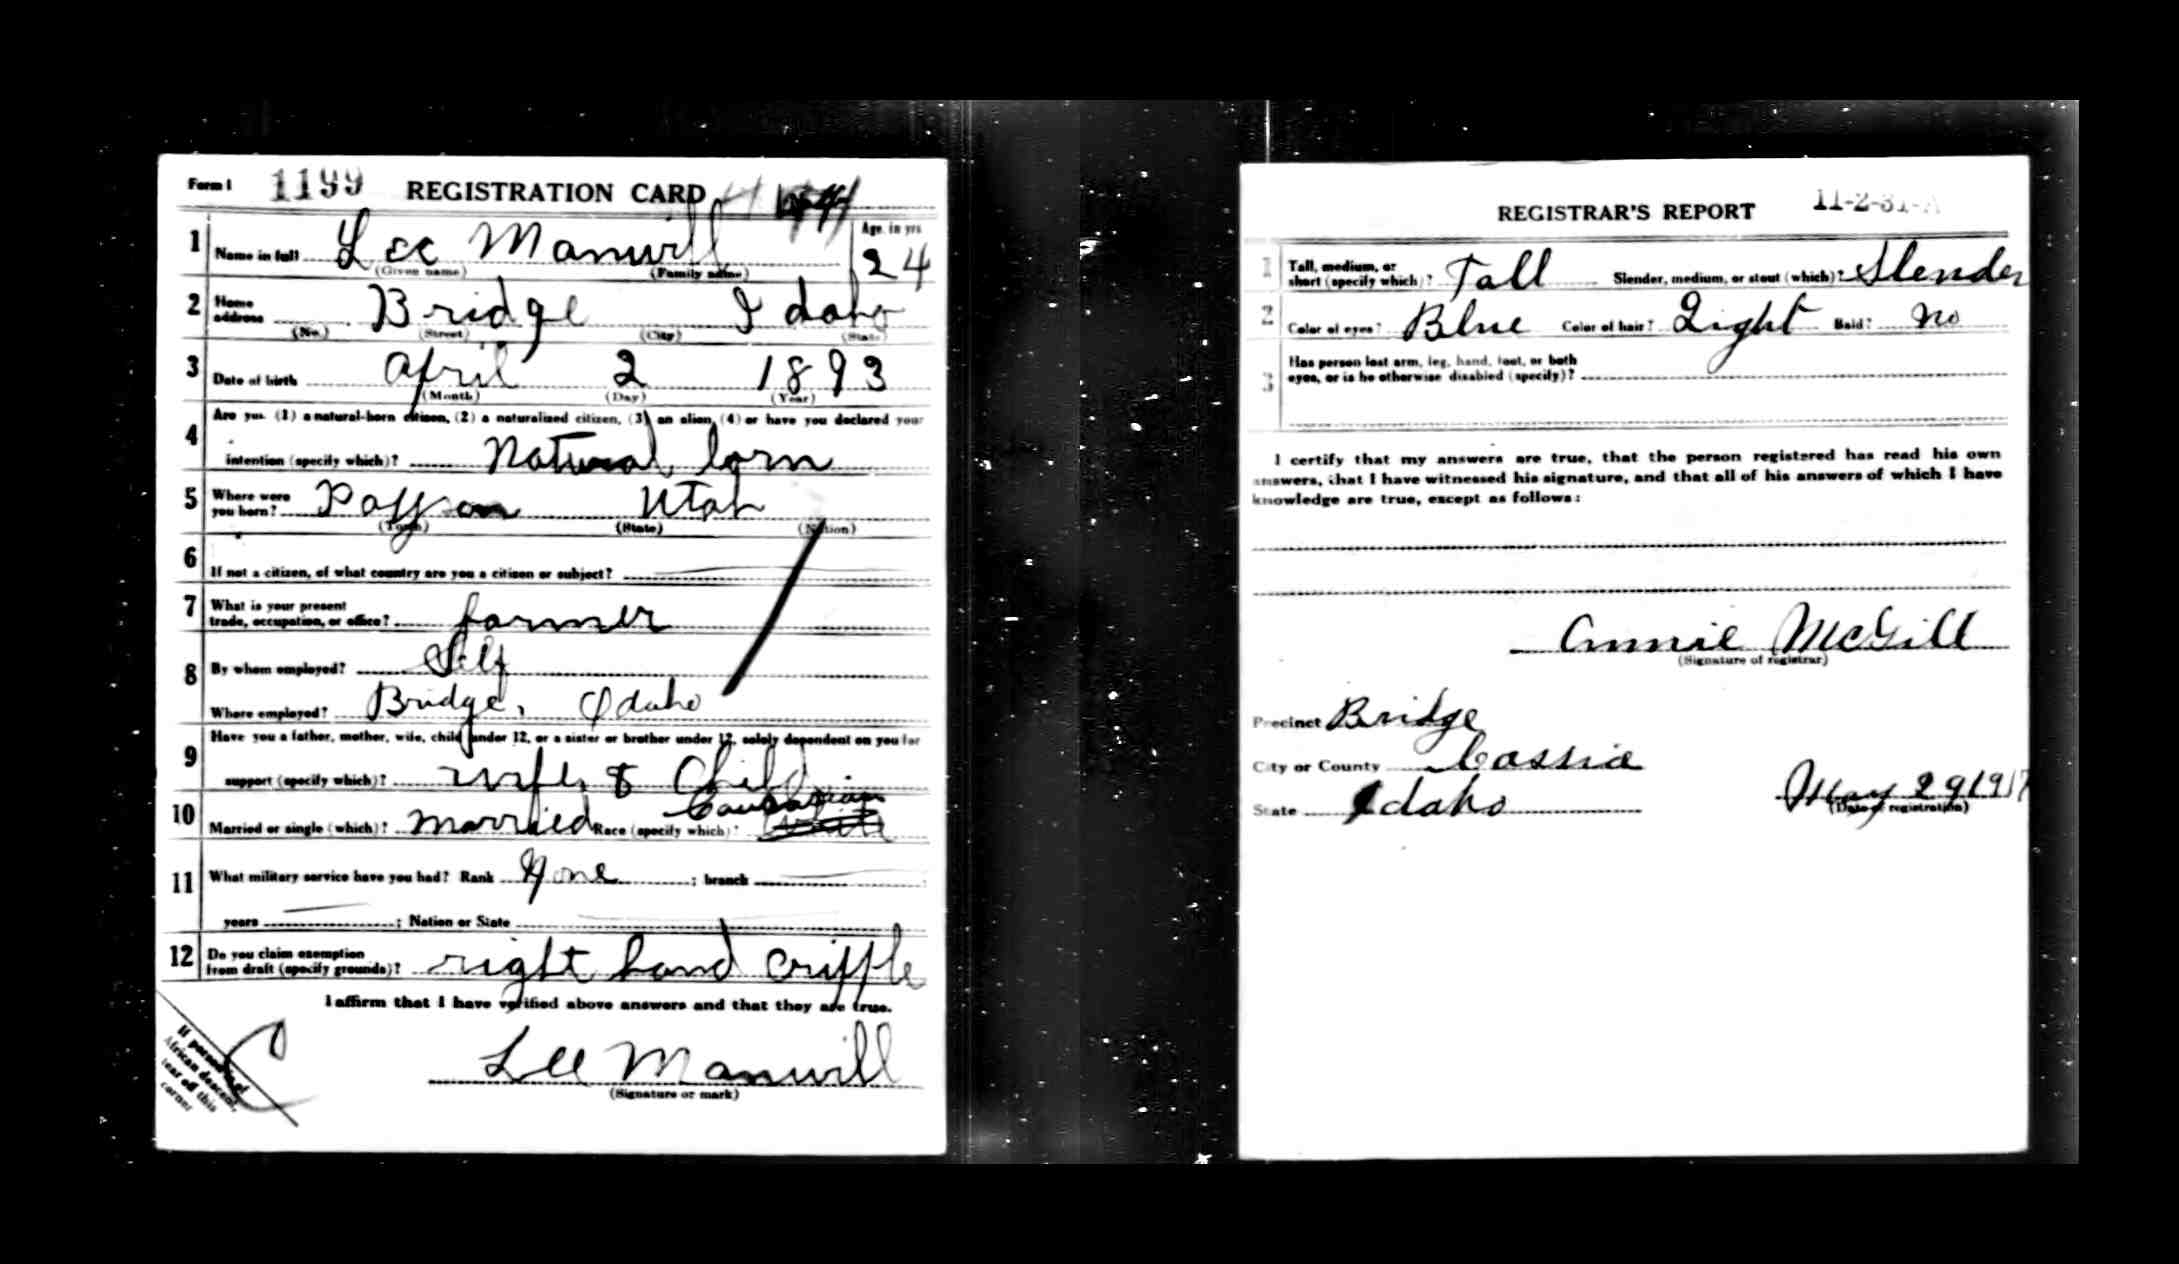 Form 1 1199 REGISTRATION CARD
1 Name in full Lee Manwill Age, in yrs 24
(Given name) (Family name)
2 Home address Bridge Idaho
(No.) (Street) (City) (State)
3 Date of birth April 2 1893
(Month) (Day) (Year)
4 Are you (1) a natural-born citizen, (2) a naturalized citizen, (3) an alien, (4) or have you declared your
intention (specify which)? Natural born
5 Where were you born? Payson Utah
(Town) (State) (Nation)
6 If not a citizen, of what country are you a citizen or subject?
7 What is your present trade, occupation, or office? farmer
8 By whom employed? Self
Where employed? Bridge, Idaho
9 Have you a father, mother, wife, child under 12, or a sister or brother under 12, solely dependent on you for
support (specify which)? wife & Child
10 Married or single (which)? married Race (specify which)? Caucasian
11 What military service have you had? Rank None ; branch
years ; Nation or State
12 Do you claim exemption from draft (specify grounds)? right hand cripple
I affirm that I have verified above answers and that they are true.
Lee Manwill
(Signature or mark)
If person is of
African descent,
tear off this
corner
C
REGISTRAR'S REPORT 11-2-31-A
1 Tall, medium, or short (specify which)? Tall Slender, medium, or stout (which)? Slender
2 Color of eyes? Blue Color of hair? Light Bald? No
3 Has person lost arm, leg, hand, foot, or both
eyes, or is he otherwise disabled (specify)?
I certify that my answers are true, that the person registered has read his own
answers, that I have witnessed his signature, and that all of his answers of which I have
knowledge are true, except as follows:
Annie McGill
(Signature of registrar)
Precinct Bridge
City or County Cassia
State Idaho May 29 1917
(Date of registration)